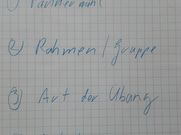 2) Rahmen / Gruppe
3) Art der Übung